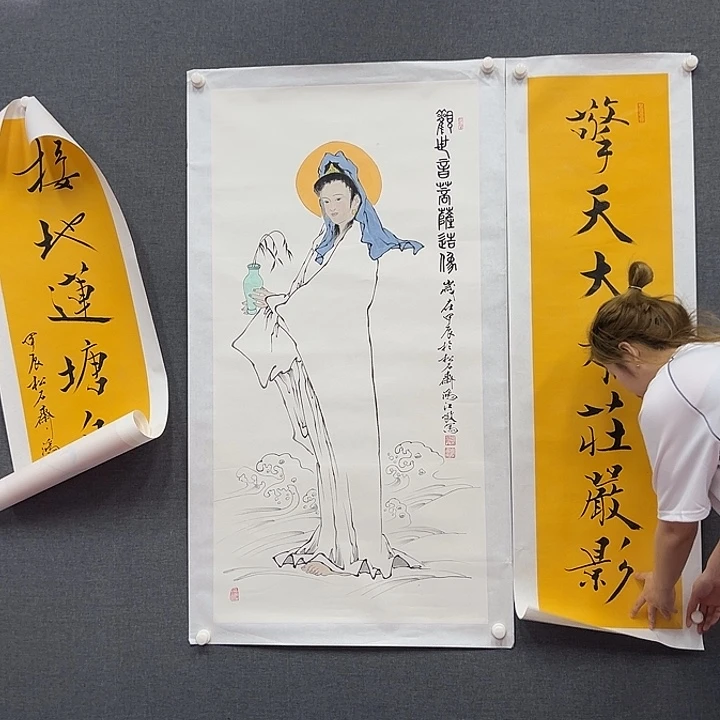 擎天大莊嚴影
觀世音菩薩造像
歲在甲辰於松石齋鴻江敬寫
接地蓮塘
甲辰松石齋鴻